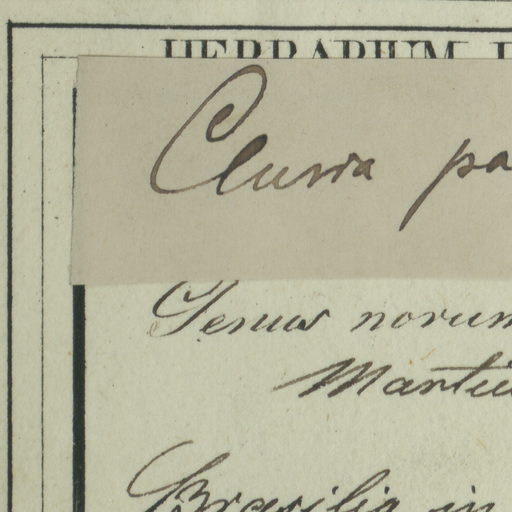 HERBARIUM
Clusia pa
Genus novum
Martiu
Brasilia in